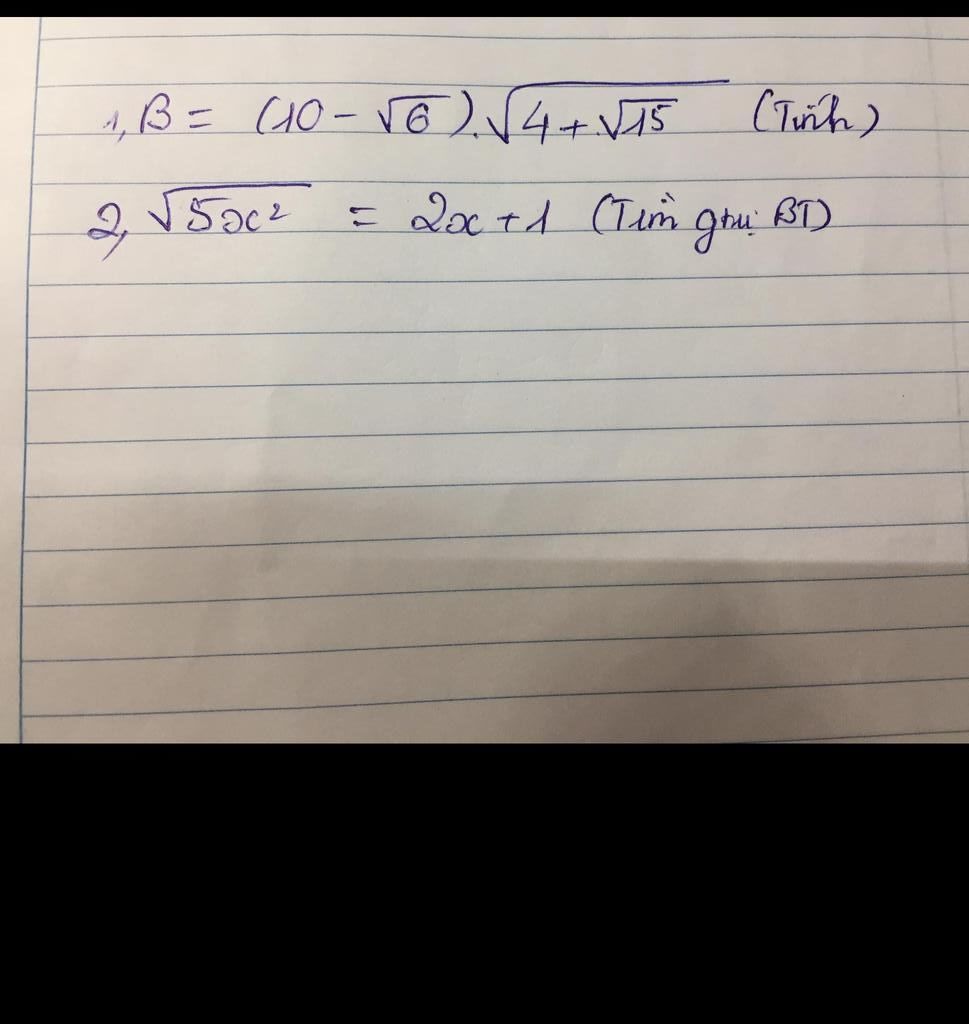 1, B = (10 - √6).√(4 + √15) (Tính)
2, √(5x²) = 2x + 1 (Tìm gtrị BT)